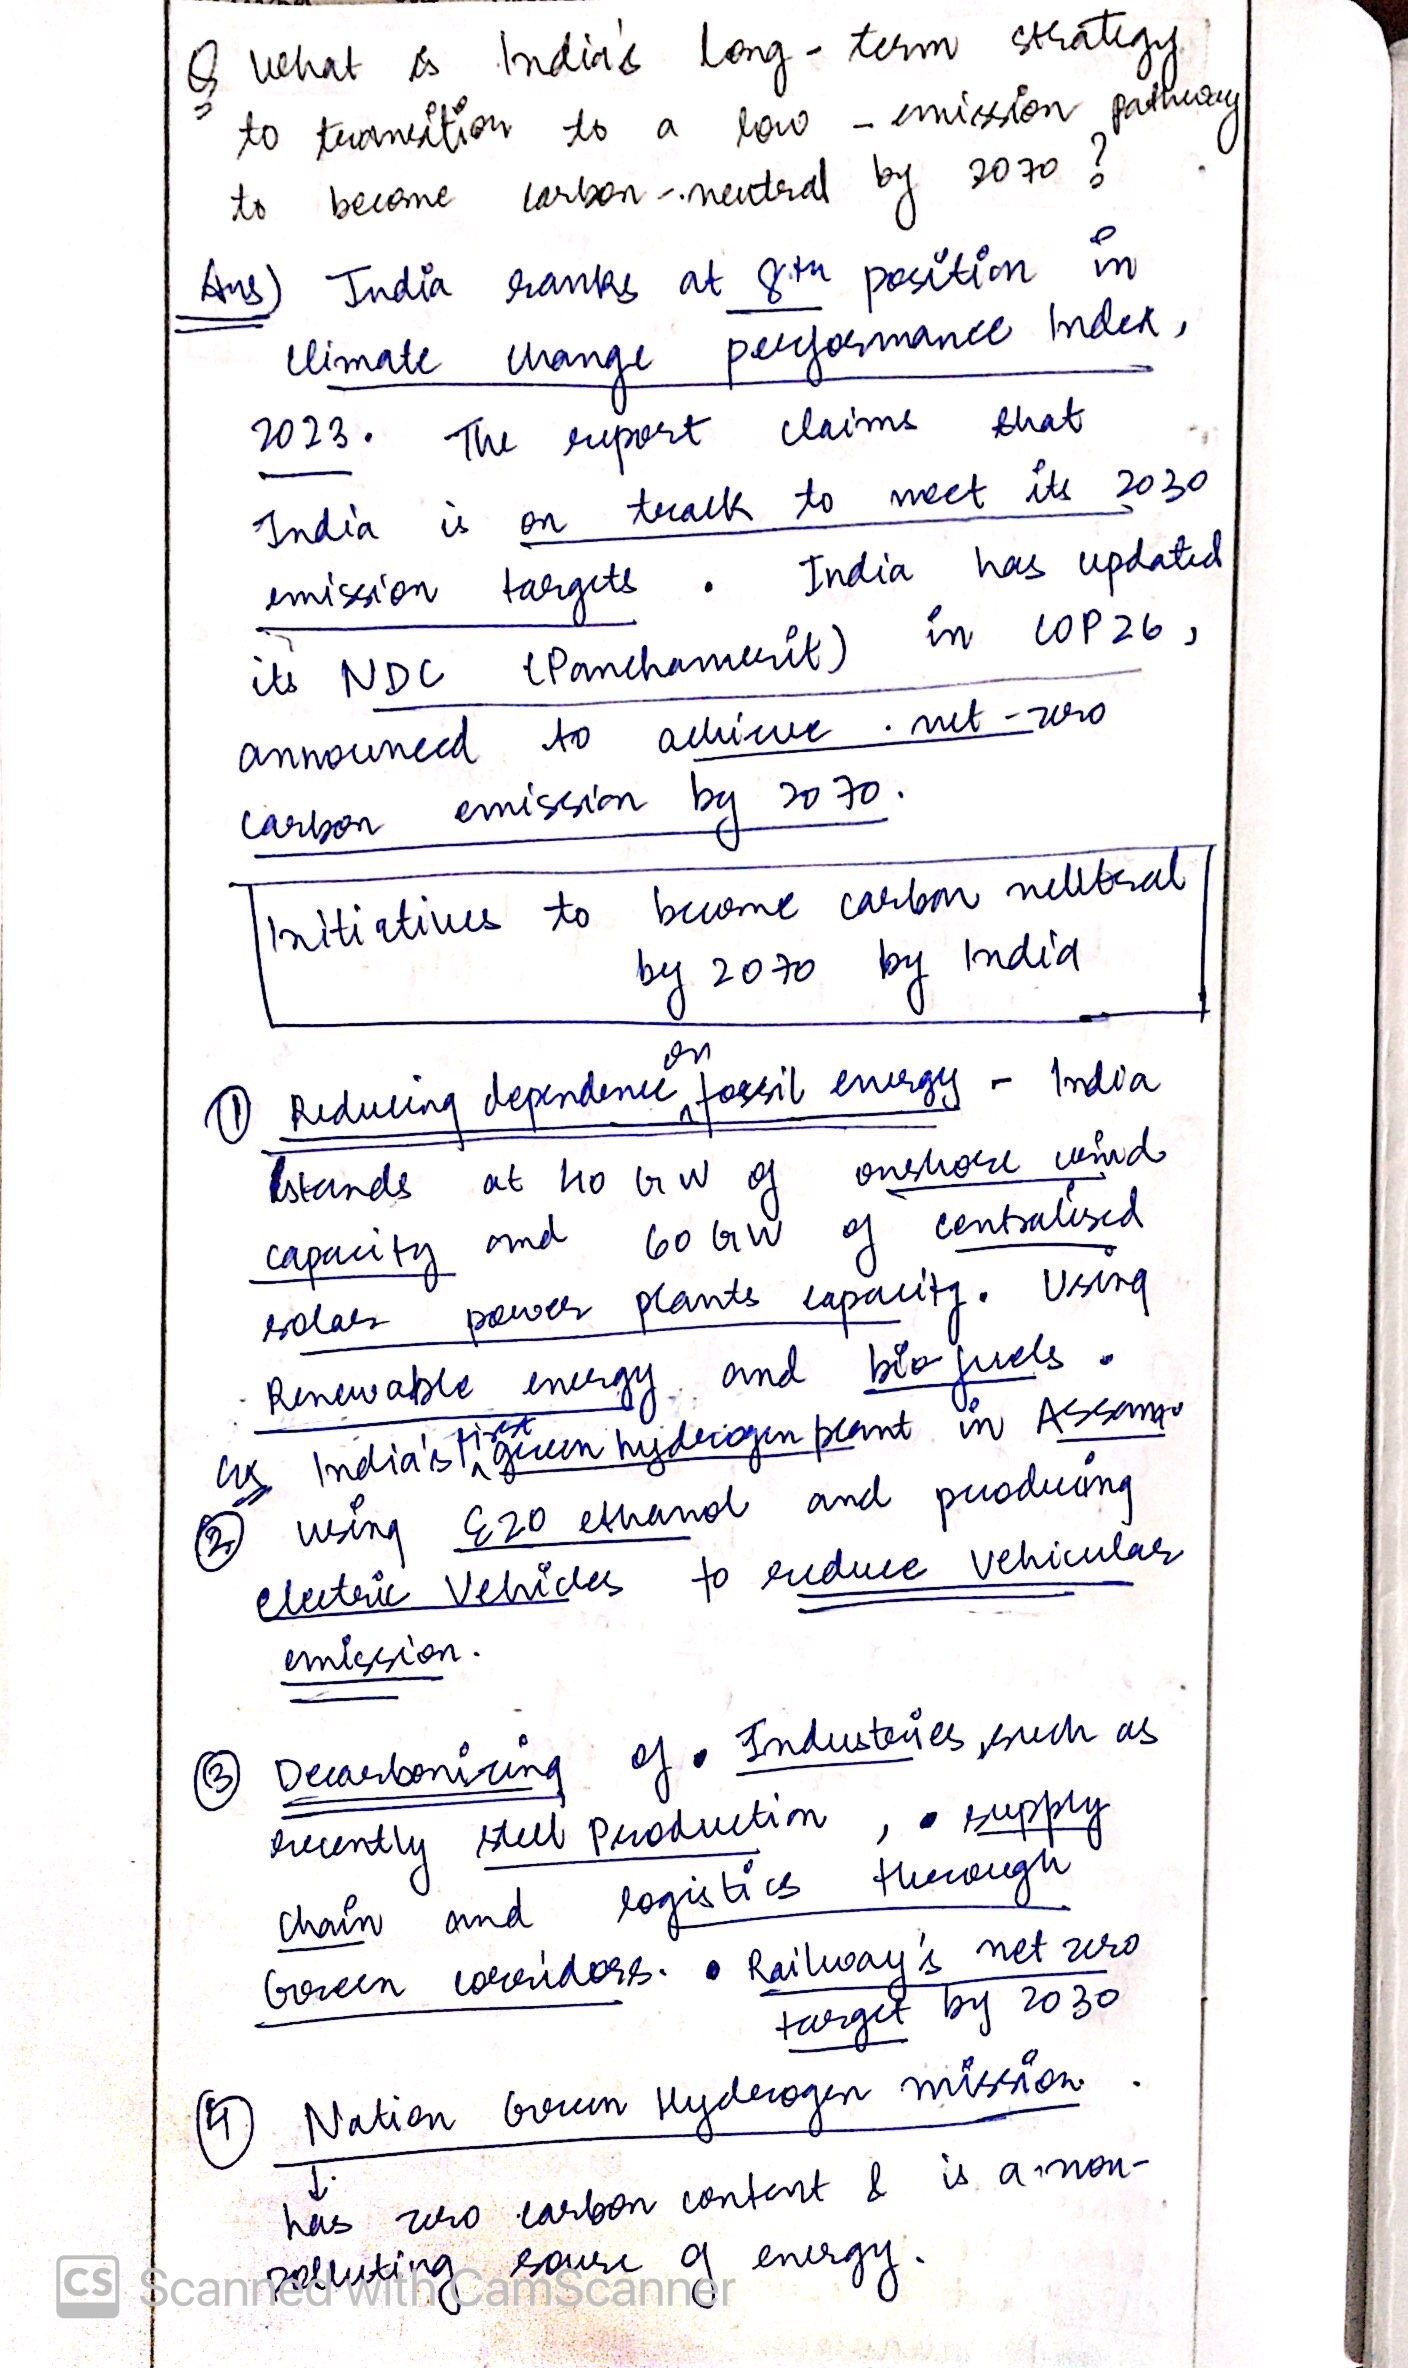 Q What is India's long-term strategy
to transition to a low-emission pathway
to become carbon-neutral by 2070?
Ans) India ranks at 8th position in
Climate change performance Index,
2023. The report claims that
India is on track to meet its 2030
emission targets. India has updated
its NDC (Panchamrit) in COP26,
announced to achieve net-zero
carbon emission by 2070.
Initiatives to become carbon neutral
by 2070 by India
① Reducing dependence on fossil energy - India
stands at 40 GW of onshore wind
capacity and 60 GW of centralised
solar power plants capacity. Using
Renewable energy and biofuels.
eg India's first green hydrogen plant in Assam
② using E20 ethanol and producing
electric Vehicles to reduce vehicular
emission.
③ Decarbonizing of • Industries, such as
recently steel production, • supply
chain and logistics through
Green corridors. • Railway's net zero
target by 2030
④ Nation Green Hydrogen mission.
↓
has zero carbon content & is a non-
polluting source of energy.
CS Scanned with CamScanner